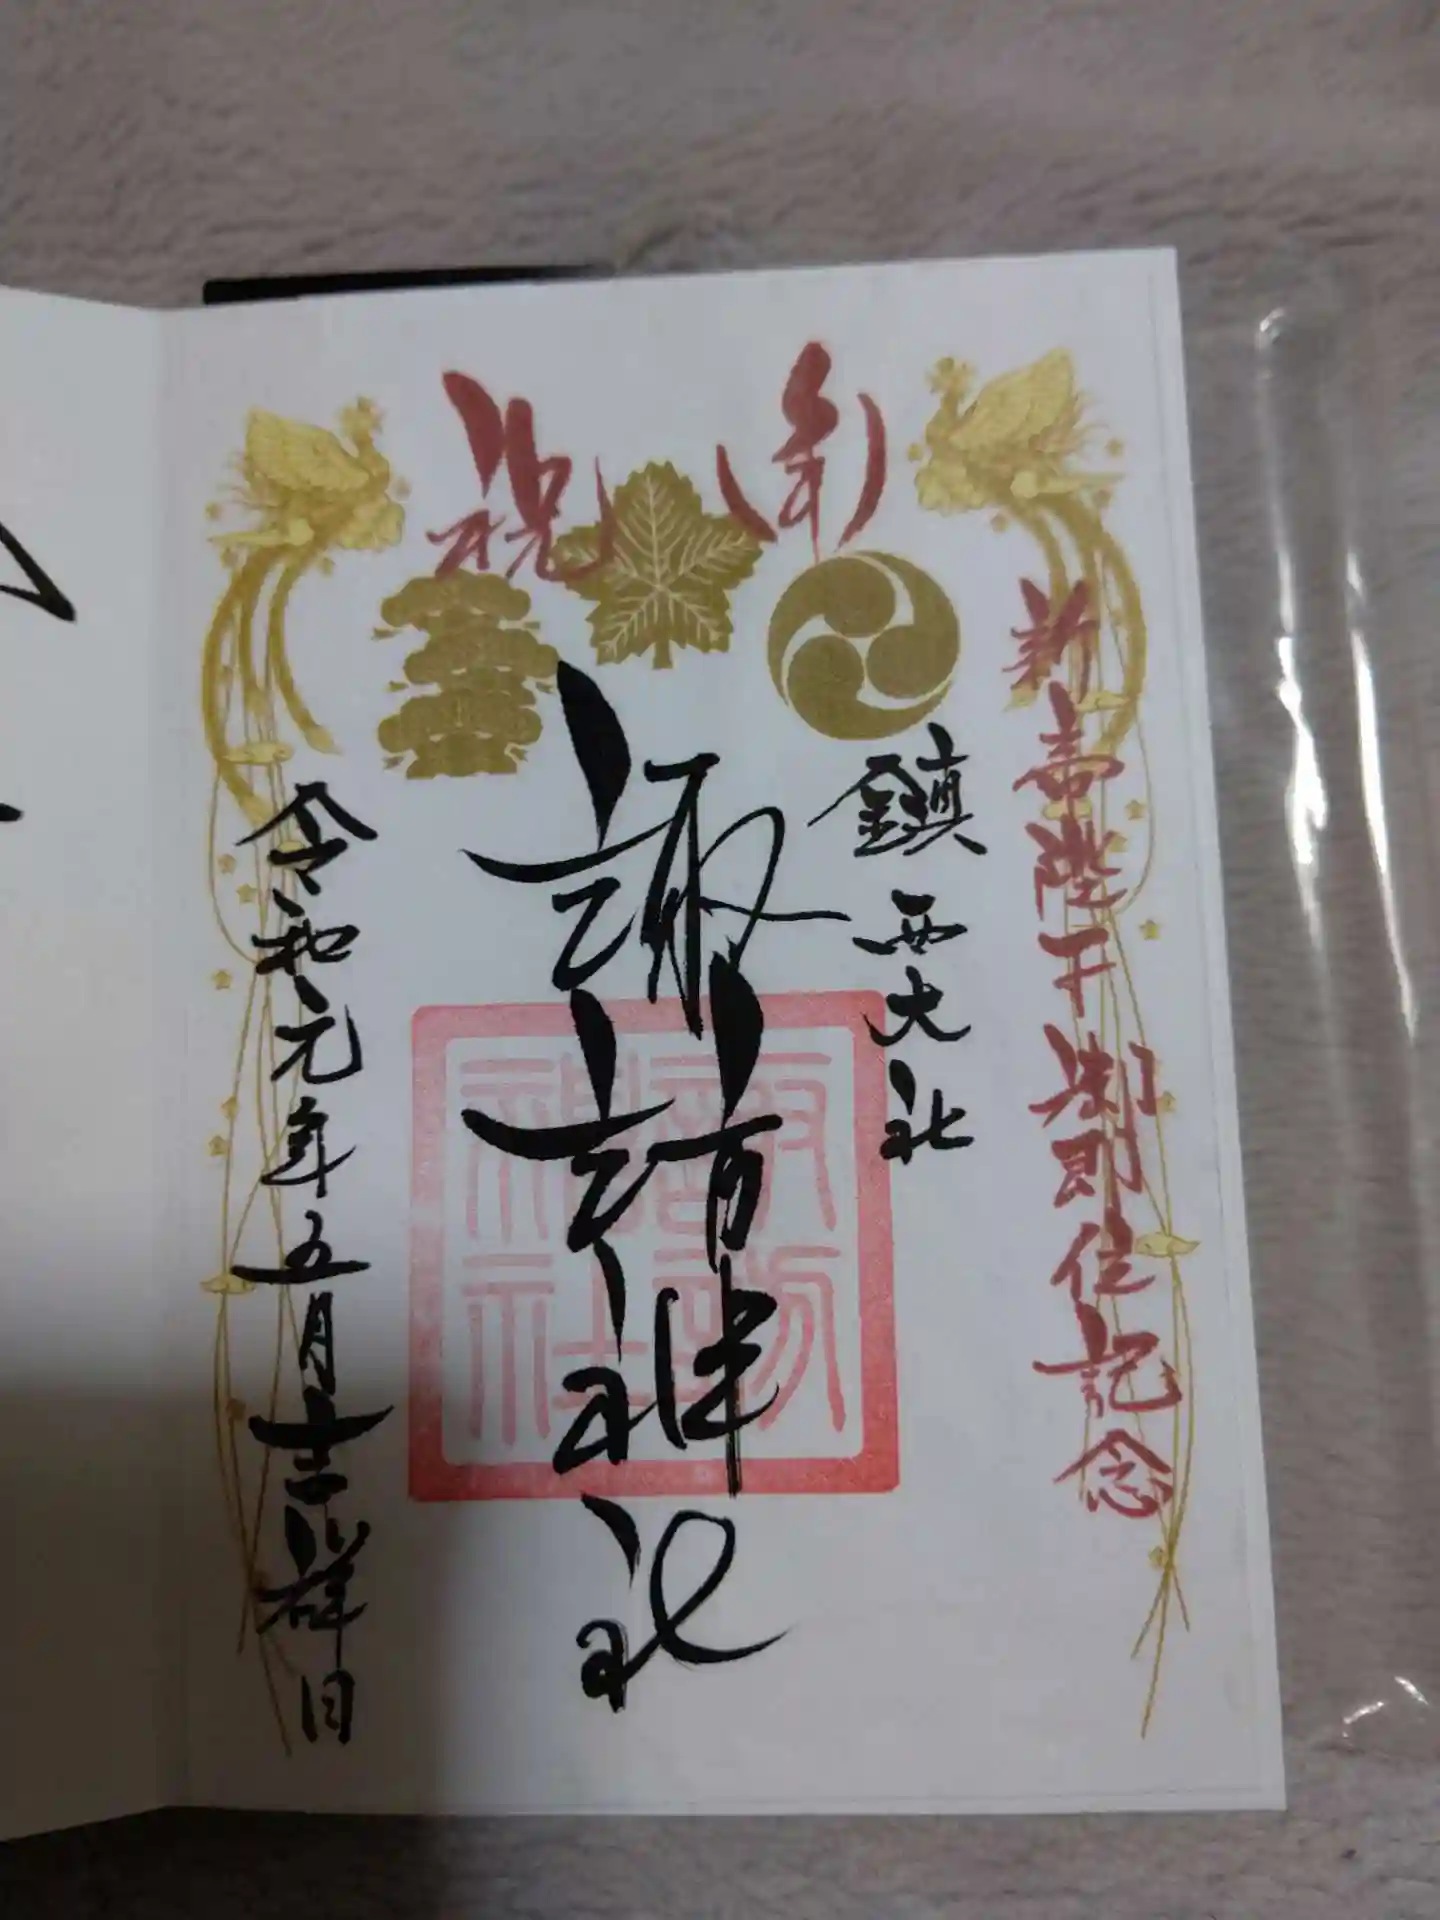 奉祝
新帝陛下御即位記念
鎮西大社
諏訪神社
諏訪
神社
令和元年五月吉祥日